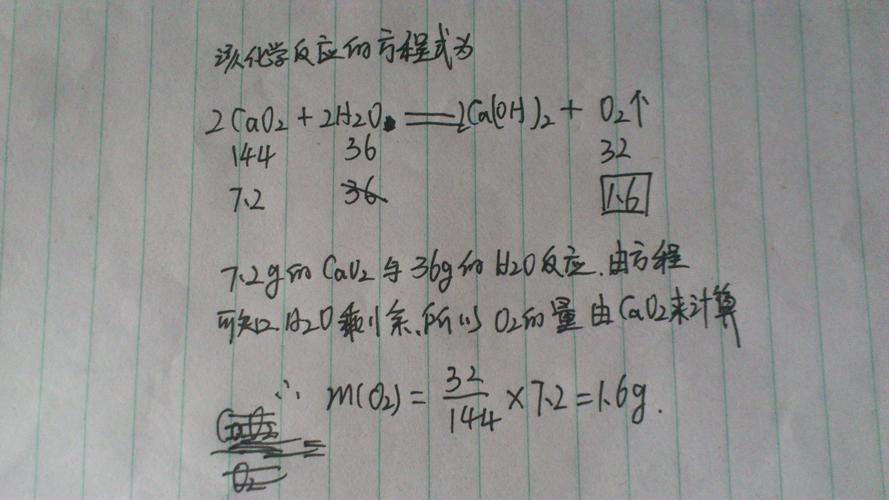 该化学反应的方程式为
2CaO₂ + 2H₂O ══ 2Ca(OH)₂ + O₂↑
144 36 32
7.2 36 1.6
7.2g的CaO₂与36g的H₂O反应.由方程
可知.H₂O剩余.所以O₂的量由CaO₂来计算
∴ m(O₂) = 32/144 × 7.2 = 1.6g.
CaO₂
O₂